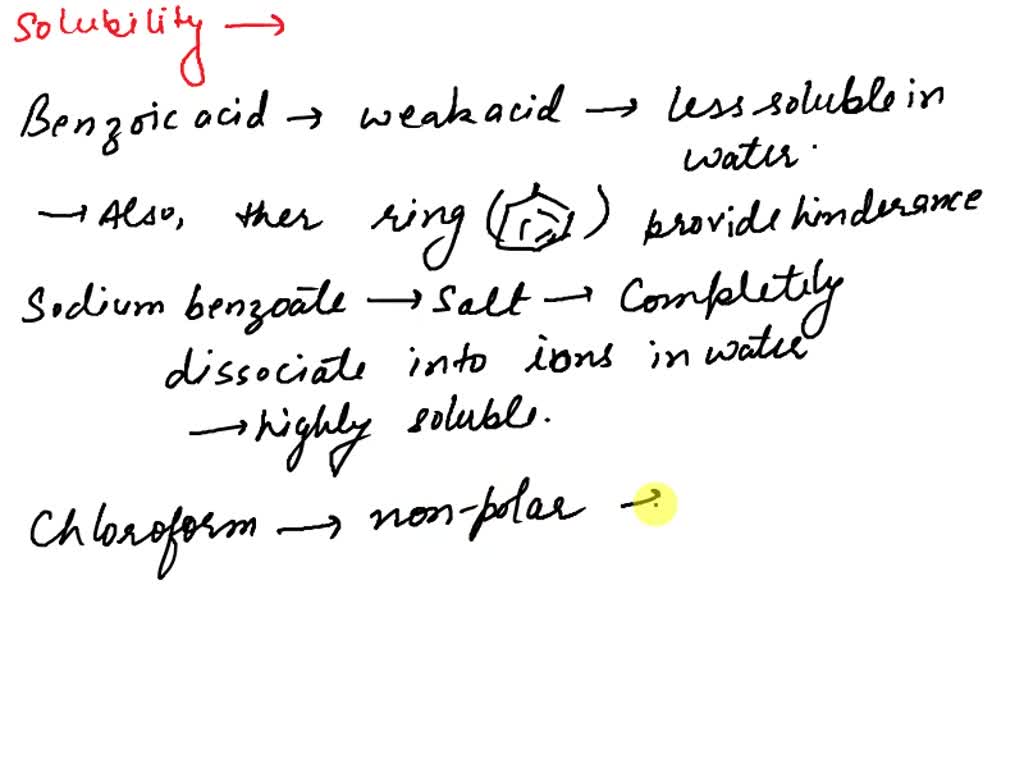 Solubility →
Benzoic acid → weak acid → less soluble in
water.
→ Also, ther ring ( ) provide hinderance
Sodium benzoate → Salt → Completely
dissociate into ions in water
→ highly soluble.
Chloroform → non-polar →